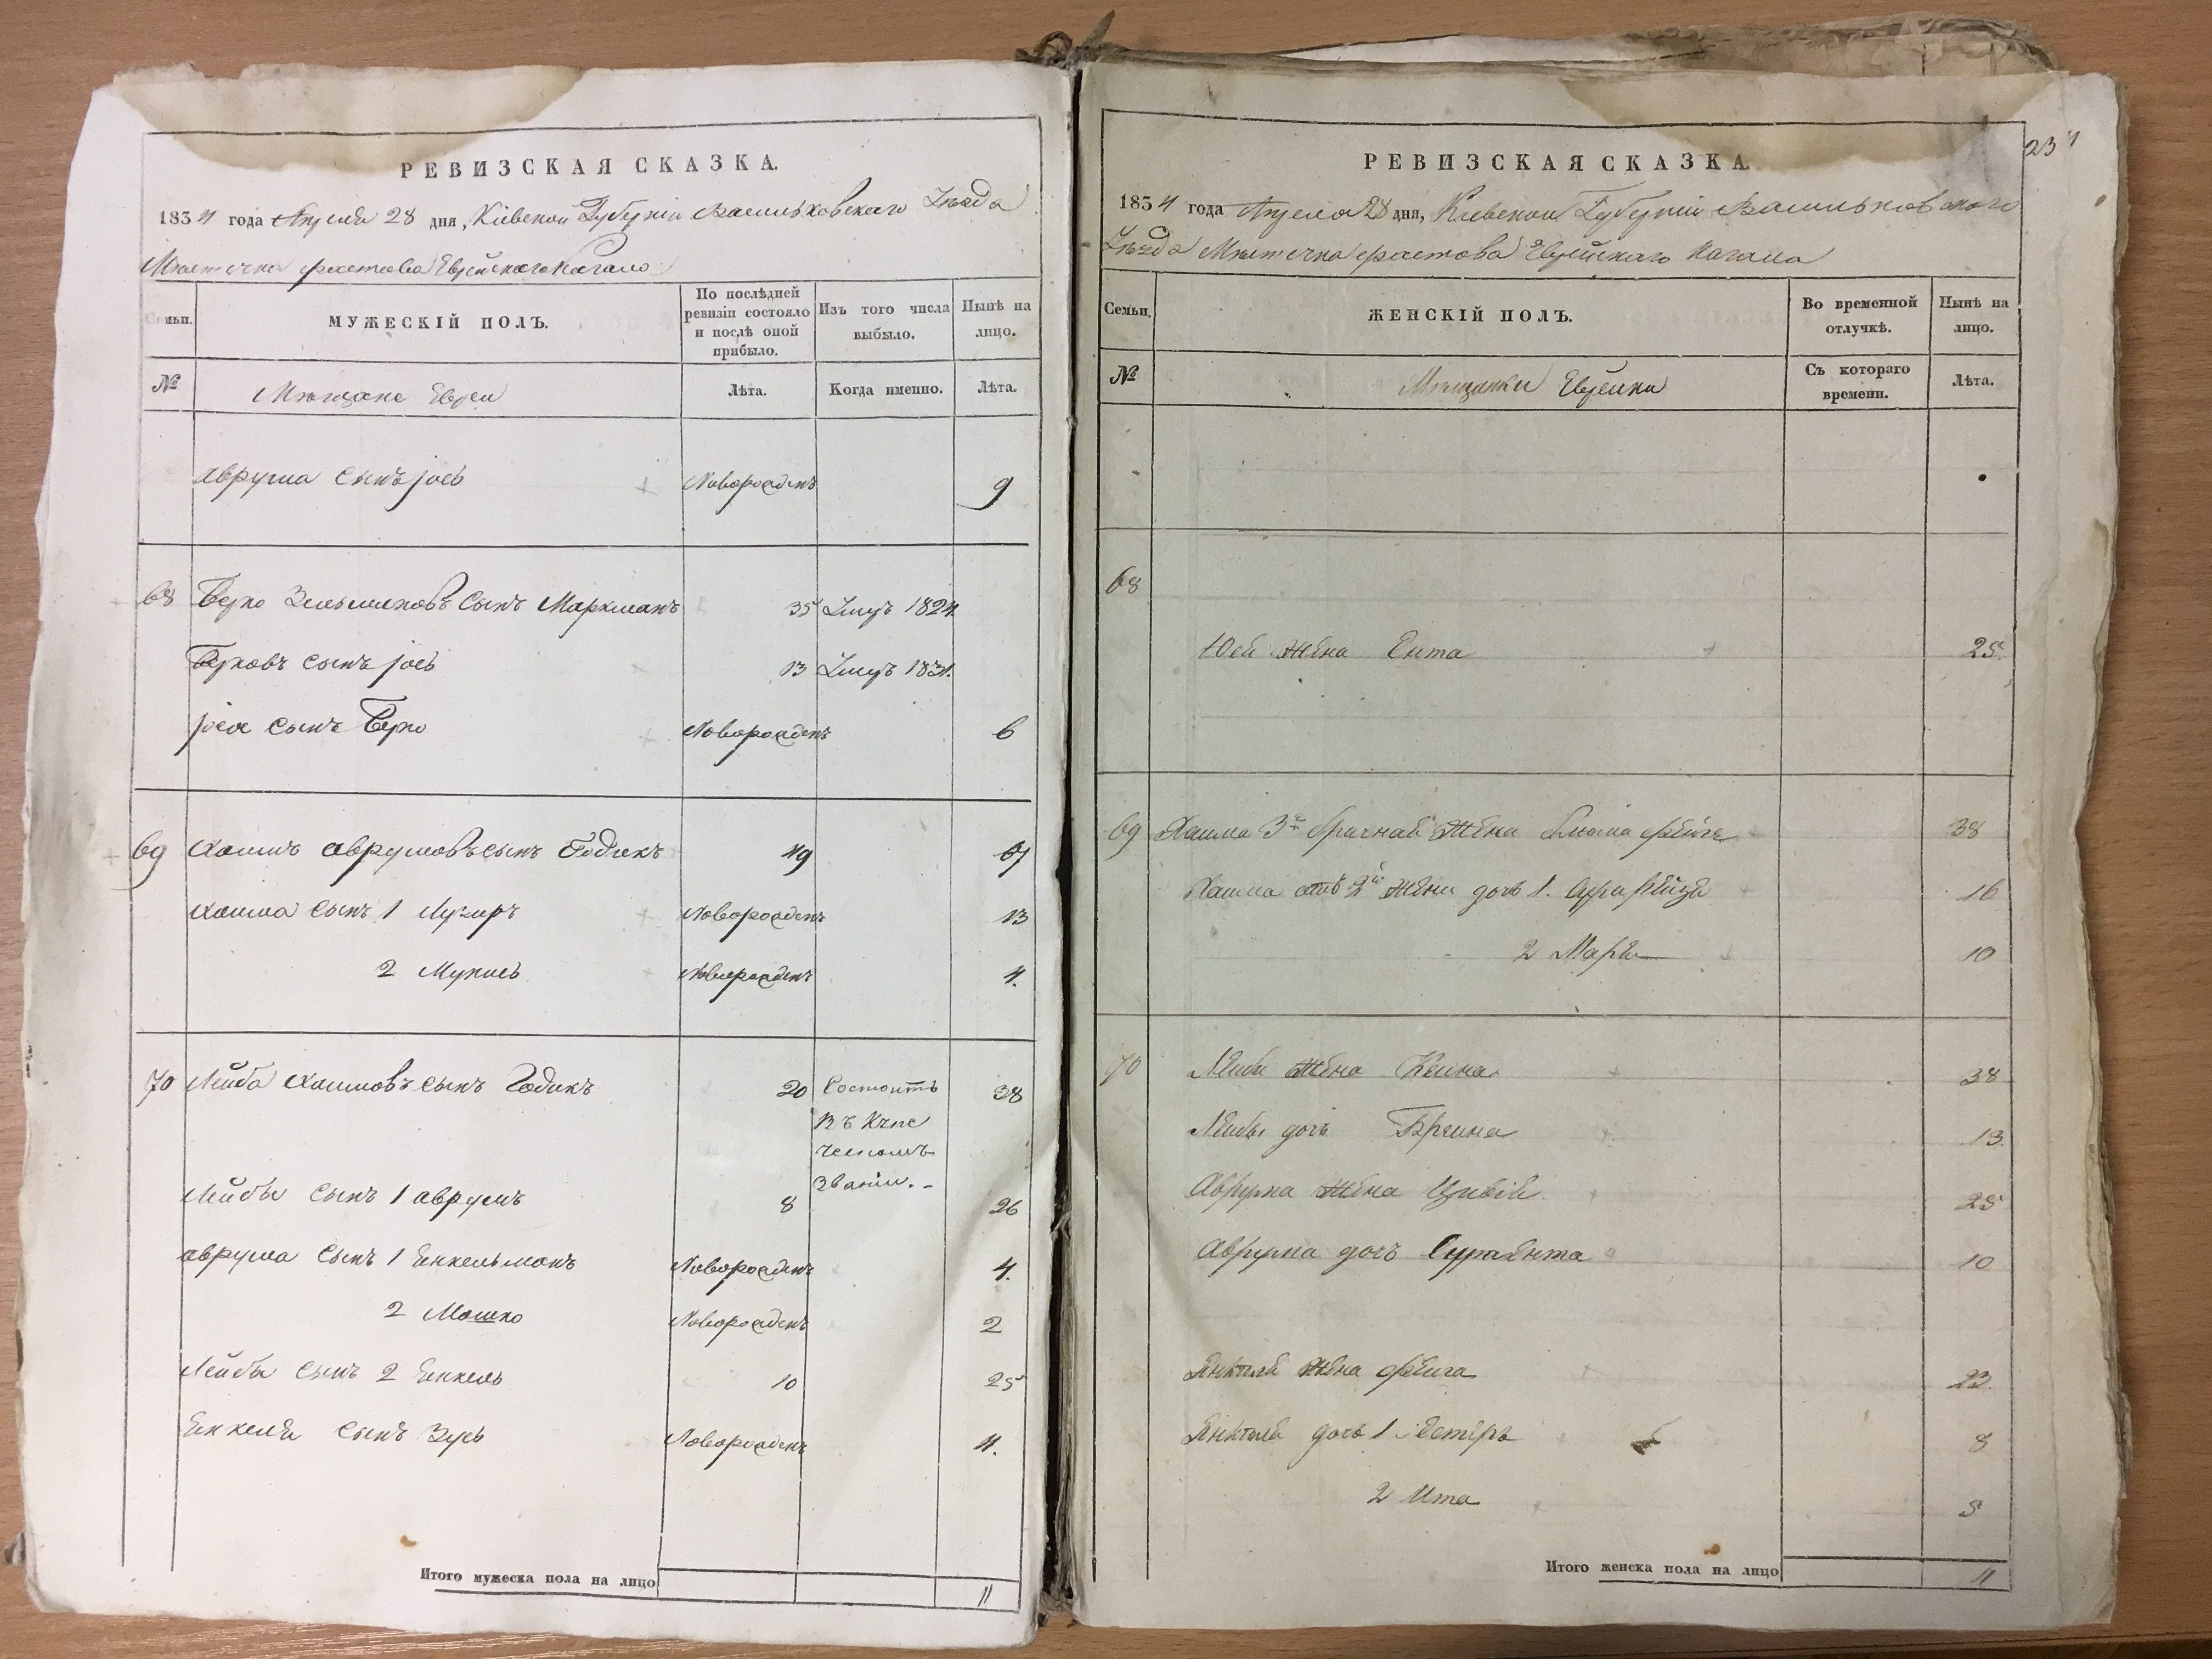 РЕВИЗСКАЯ СКАЗКА.
1834 года Апреля 28 дня, Кіевской Губерніи Васильковскаго Уѣзда
Мѣстечка Фастова Еврейскаго Кагала
Семьи.
МУЖЕСКІЙ ПОЛЪ.
По послѣдней ревизіи состояло и послѣ оной прибыло.
Изъ того числа выбыло.
Нынѣ на лицо.
№
Мѣщане Евреи
Лѣта.
Когда именно.
Лѣта.
Аврума сынъ Іось Новорожденъ 9
68 Берко Зельмановъ сынъ Маркманъ 35 Умеръ 1824.
Берковъ сынъ Іось 13 Умеръ 1831.
Іося сынъ Берко Новорожденъ 6
69 Хаимъ Аврумовъ сынъ Годикъ 49 67
Хаима сынъ 1 Лузеръ Новорожденъ 13
2 Новорожденъ 4.
70 Лейба Хаимовъ сынъ Годикъ 20 Состоитъ 38
въ Купе
ческомъ
Званіи.
Лейбы сынъ 1 Аврумъ 8 26
Аврума сынъ 1 Енкельмонъ Новорожденъ 4.
2 Мошко Новорожденъ 2
Лейбы сынъ 2 Енкель 10 25
Енкеля сынъ Зусь Новорожденъ 4.
Итого мужеска пола на лицо 11
РЕВИЗСКАЯ СКАЗКА. 234
1834 года Апреля 28 дня, Кіевской Губерніи Васильковскаго
Уѣзда Мѣстечка Фастова Еврейскаго Кагала
Семьи.
ЖЕНСКІЙ ПОЛЪ.
Во временной отлучкѣ.
Нынѣ на лицо.
№
Мѣщанки Еврейки
Съ котораго времени.
Лѣта.
68
жена Ента 25.
69 Хаима 3й брачная жена Фейга 38
Хаима отъ 2й жены дочь 1. Сура Рейзя 16
2 Маря 10
70 Лейбы жена Кейна 38
Лейбы дочь Брейна 13.
Аврума жена Цивія 25
Аврума дочь Сура Ента 10
Янкеля жена Фейга 23.
Янкеля дочь 1 Естеръ 8
2 Ита 5
Итого женска пола на лицо 11